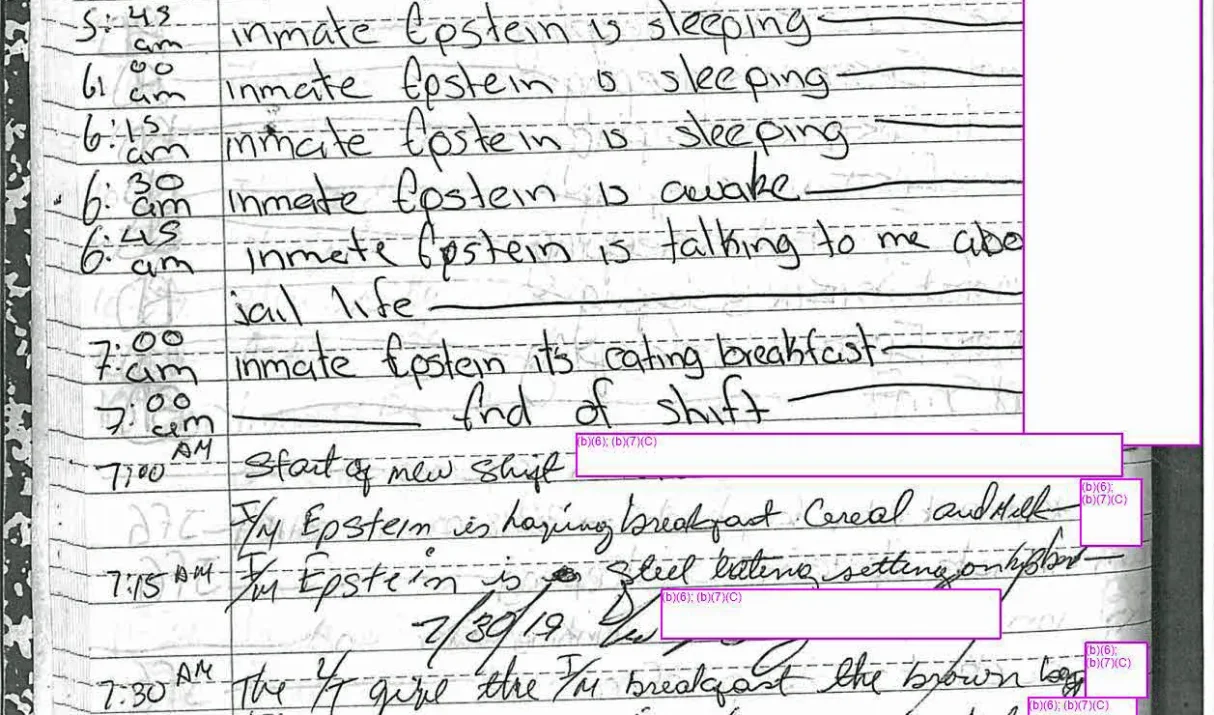 5:45 am inmate Epstein is sleeping
6:00 am inmate Epstein is sleeping
6:15 am inmate Epstein is sleeping
6:30 am inmate Epstein is awake
6:45 am inmate Epstein is talking to me abo
jail life
7:00 am inmate Epstein it's eating breakfast
7:00 am End of shift
7:00 AM Start of new shift (b)(6); (b)(7)(C)
I/M Epstein is having breakfast Cereal and Milk (b)(6); (b)(7)(C)
7:15 AM I/M Epstein is steel eating, setting on
7/30/19 (b)(6); (b)(7)(C)
7:30 AM The give the I/M breakfast the brown bag (b)(6); (b)(7)(C)
(b)(6); (b)(7)(C)